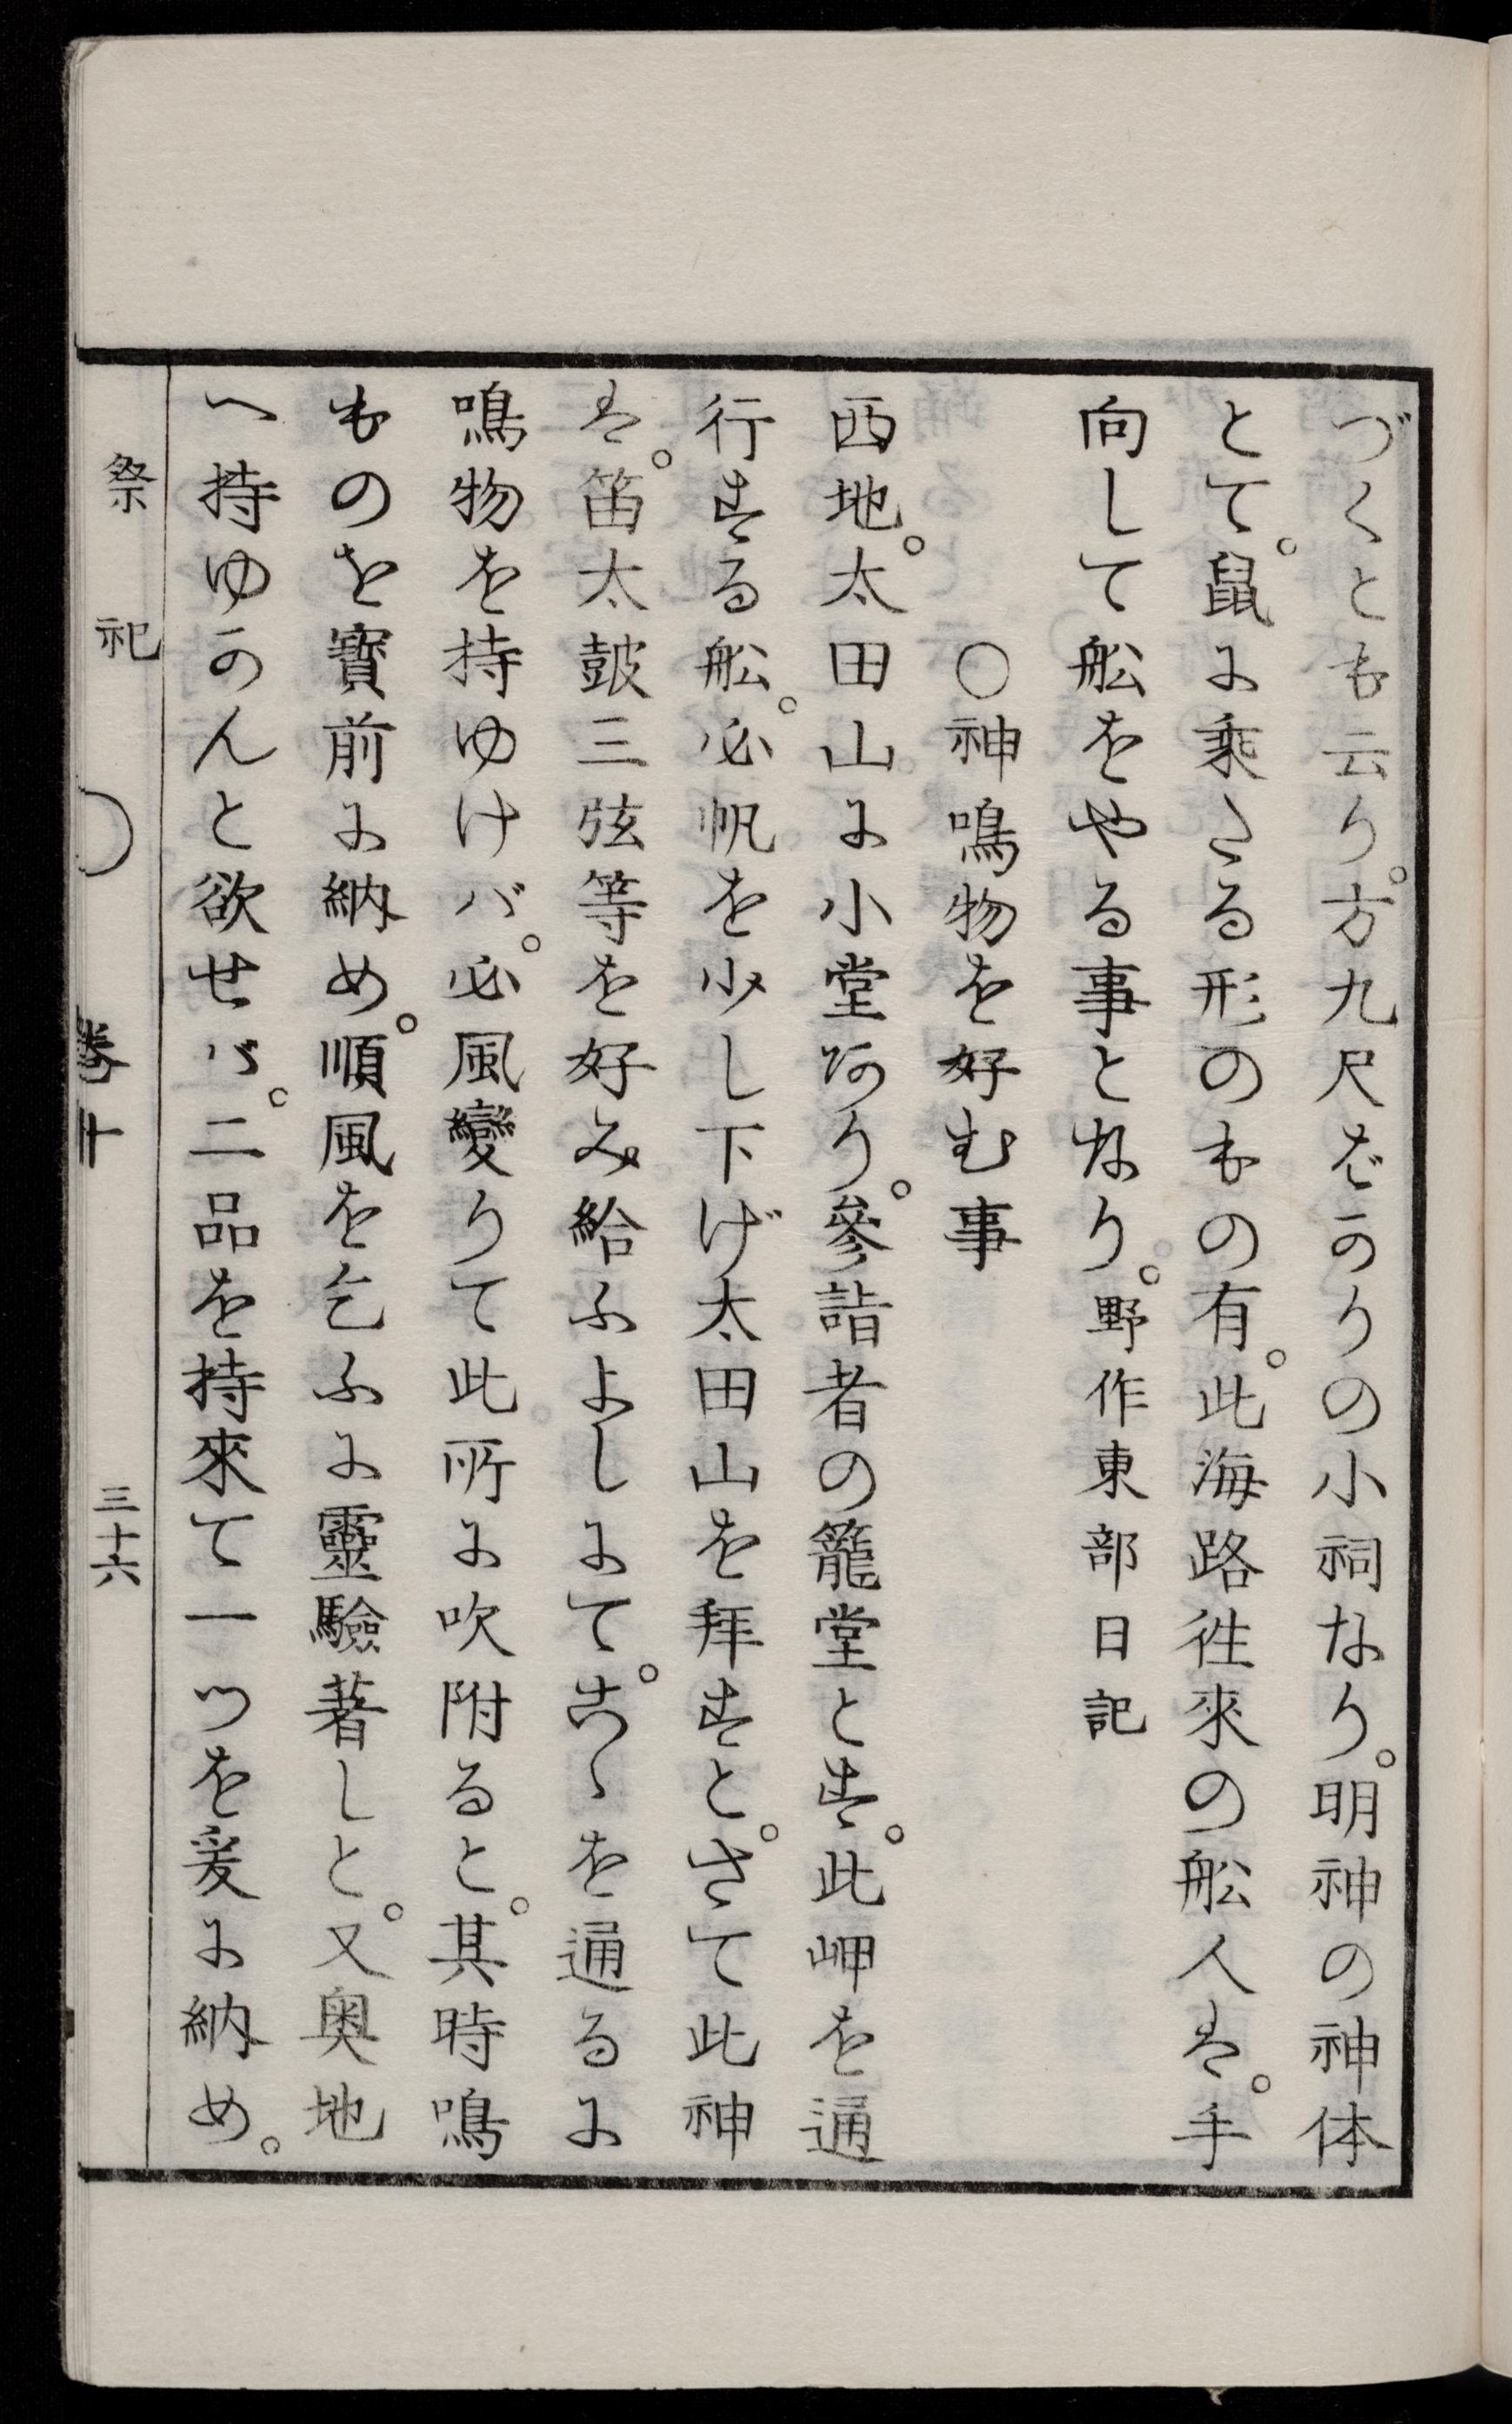 づくとも云り。方九尺ばかりの小祠なり。明神の神体
とて。鼠に乘たる形のもの有。此海路徃來の舩人は。手
向して舩をやる事となり。野作東部日記
○神鳴物を好む事
西地。太田山に小堂あり。參詣者の籠堂とす。此岬を通
行する舩。必帆を少し下げ太田山を拜すと。さて此神
は。笛太鼓三弦等を好み給ふよしにて。こゝを通るに
鳴物を持ゆけバ。必風變りて此所に吹附ると。其時鳴
ものを寳前に納め。順風を乞ふに靈驗著しと。又奥地
へ持ゆかんと欲せバ。二品を持來て一つを爰に納め。
祭祀 卷十 三十六